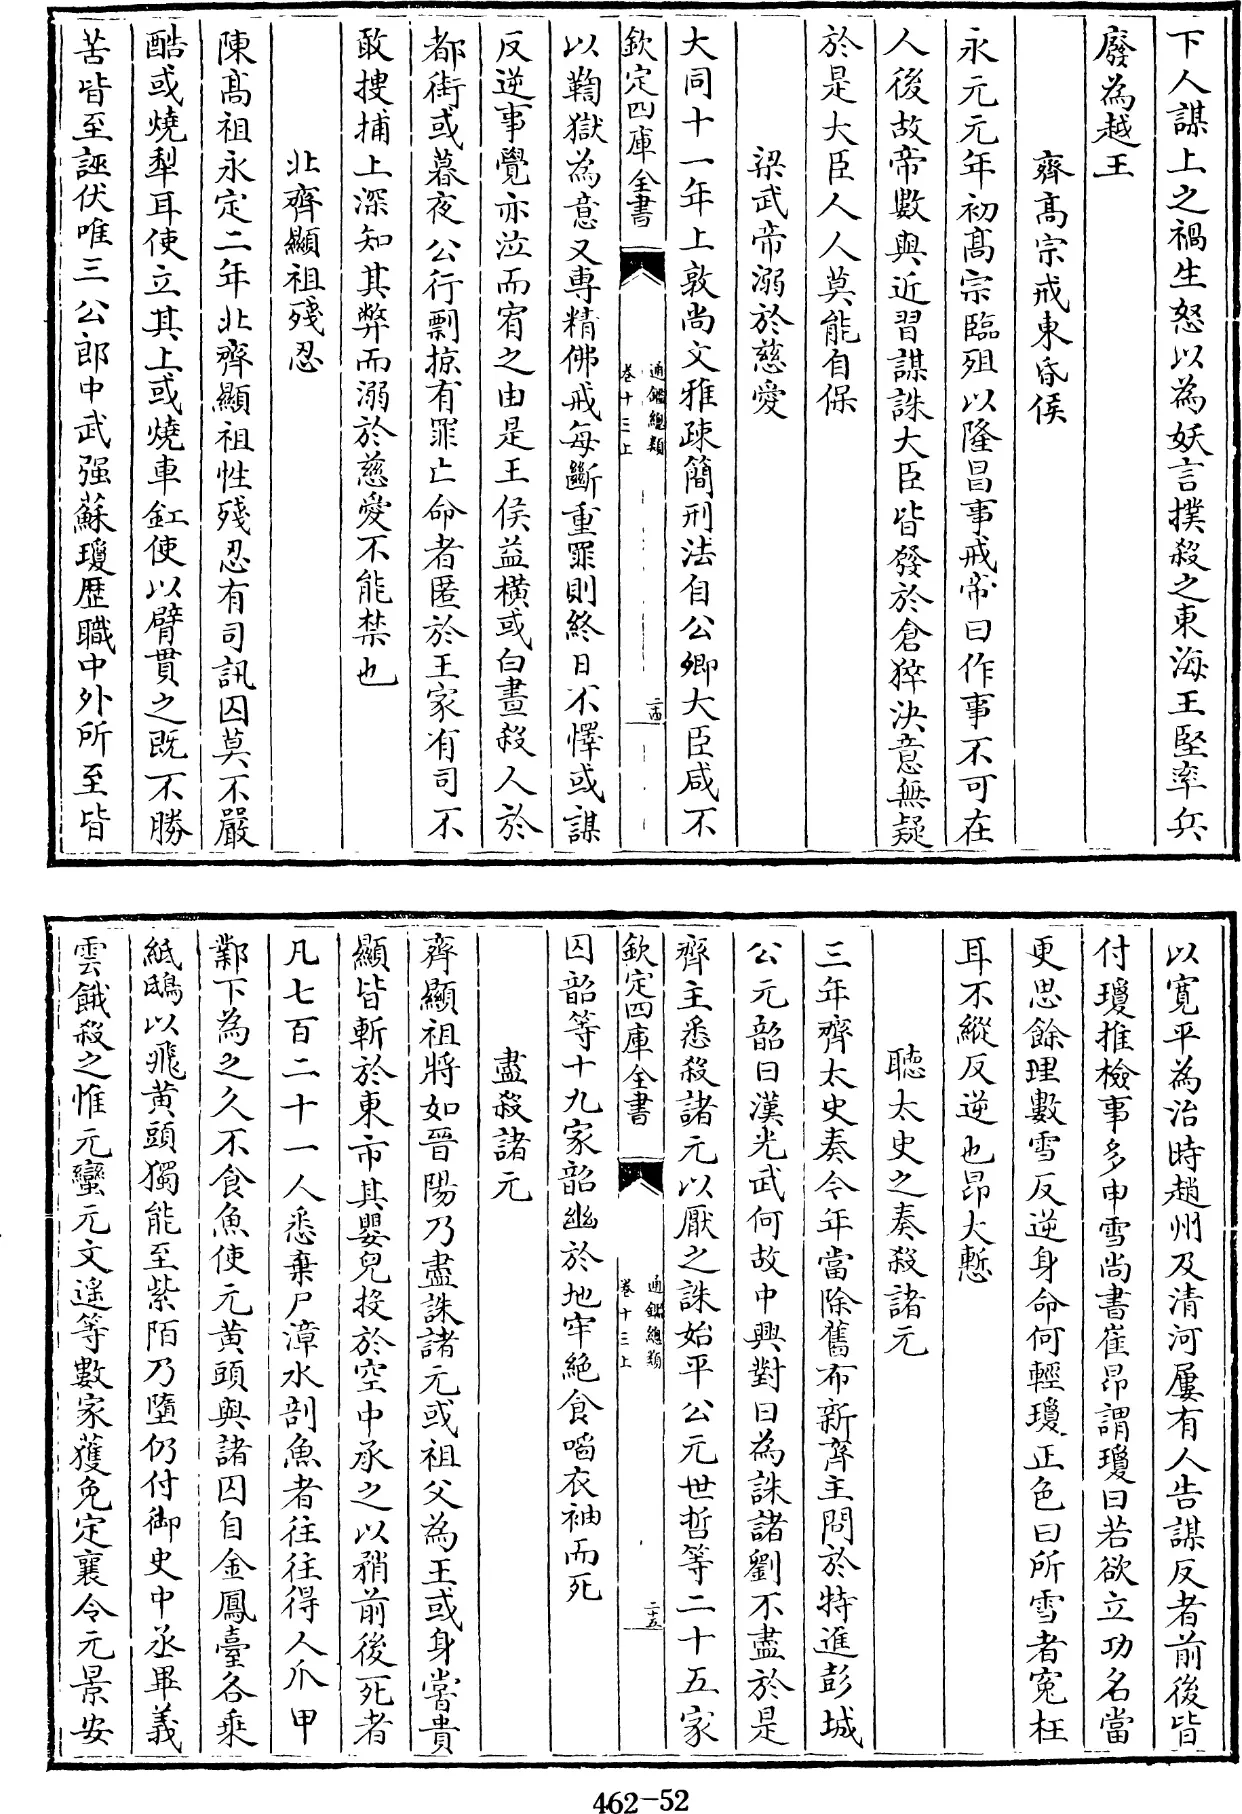 下人謀上之禍生怒以為妖言撲殺之東海王堅率兵
廢為越王
齊髙宗戒東昏侯
永元元年初髙宗臨殂以隆昌事戒帝曰作事不可在
人後故帝數與近習謀誅大臣皆發於倉猝決意無疑
於是大臣人人莫能自保
梁武帝溺於慈愛
大同十一年上敦尚文雅疎簡刑法自公卿大臣咸不
欽定四庫全書
通鑑總類
卷十三上
二十四
以鞫獄為意又専精佛戒每斷重罪則終日不懌或謀
反逆事覺亦泣而宥之由是王侯益横或白晝殺人於
都街或暮夜公行剽掠有罪亡命者匿於王家有司不
敢捜捕上深知其弊而溺於慈愛不能禁也
北齊顯祖殘忍
陳髙祖永定二年北齊顯祖性殘忍有司訊囚莫不嚴
酷或燒犁耳使立其上或燒車釭使以臂貫之既不勝
苦皆至誣伏唯三公郎中武强蘇瓊歴職中外所至皆
以寛平為治時趙州及清河屢有人告謀反者前後皆
付瓊推檢事多申雪尚書崔昂謂瓊曰若欲立功名當
更思餘理數雪反逆身命何輕瓊正色曰所雪者寃枉
耳不縱反逆也昂大慙
聴太史之奏殺諸元
三年齊太史奏今年當除舊布新齊主問於特進彭城
公元韶曰漢光武何故中興對曰為誅諸劉不盡於是
齊主悉殺諸元以厭之誅始平公元世哲等二十五家
欽定四庫全書
通鑑總類
卷十三上
二十五
囚韶等十九家韶幽於地牢絶食㗖衣袖而死
盡殺諸元
齊顯祖將如晉陽乃盡誅諸元或祖父為王或身嘗貴
顯皆斬於東市其嬰兒投於空中承之以矟前後死者
凡七百二十一人悉棄尸漳水剖魚者往往得人爪甲
鄴下為之久不食魚使元黄頭與諸囚自金鳳臺各乘
紙鴟以飛黄頭獨能至紫陌乃墮仍付御史中丞畢義
雲餓殺之惟元蠻元文遙等數家獲免定襄令元景安
462-52